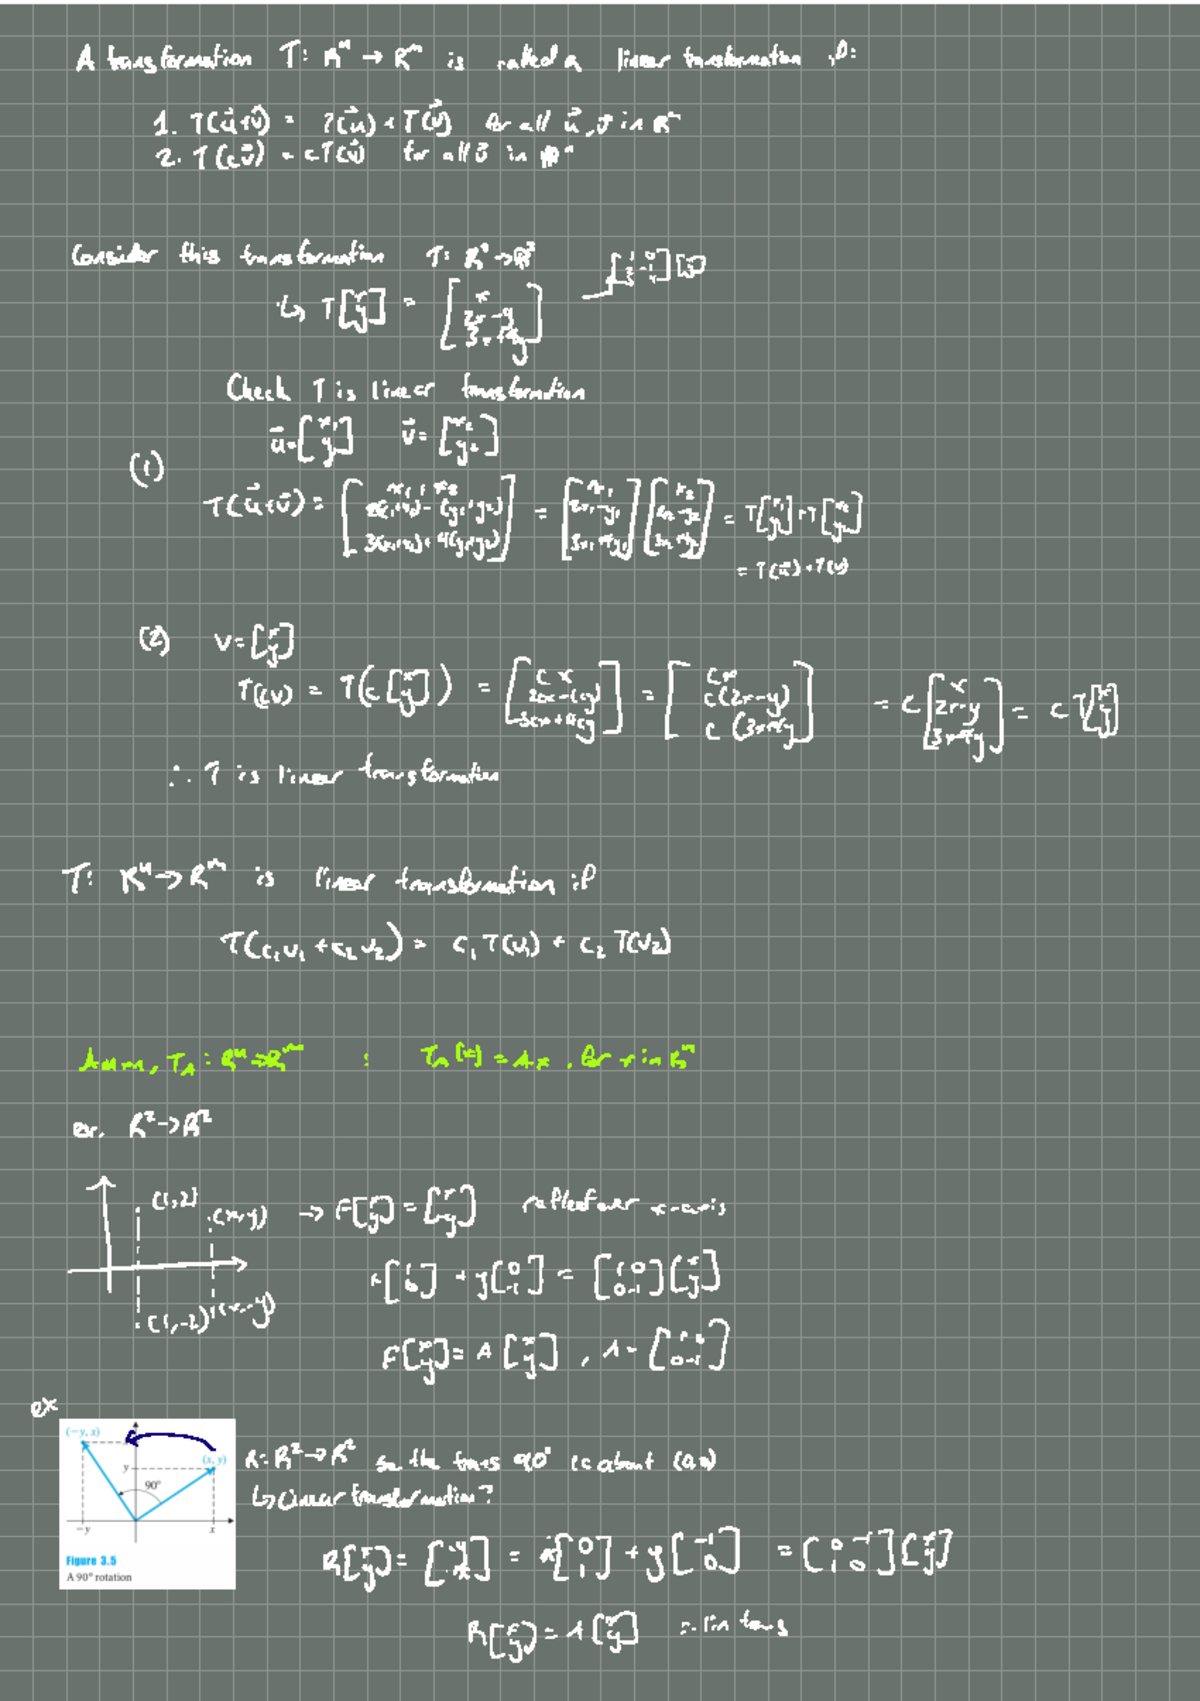 A transformation T: Rⁿ → Rᵐ is called a linear transformation if:
1. T(u⃗+v⃗) = T(u⃗) + T(v⃗) for all u⃗, v⃗ in Rⁿ
2. T(cv⃗) = cT(v⃗) for all v⃗ in Rⁿ
Consider this transformation T: R² → R³
[1 0; 2 -1; 3 4] [x; y]
↳ T[x; y] = [x; 2x-y; 3x+4y]
Check T is linear transformation
u⃗ = [x₁; y₁] v⃗ = [x₂; y₂]
(1)
T(u⃗+v⃗) = [x₁+x₂; 2(x₁+x₂) - (y₁+y₂); 3(x₁+x₂) + 4(y₁+y₂)] = [x₁; 2x₁-y₁; 3x₁+4y₁] [x₂; 2x₂-y₂; 3x₂+4y₂] = T[x₁; y₁] + T[x₂; y₂]
= T(u⃗) + T(v)
(2) v = [x; y]
T(cv) = T(c[x; y]) = [cx; 2cx-(cy); 3cx+4cy] = [cx; c(2x-y); c(3x+4y] = c[x; 2x-y; 3x+4y] = cT[x; y]
∴ T is linear transformation
T: Rⁿ → Rᵐ is linear transformation if
T(c₁v₁ + c₂v₂) = c₁T(v₁) + c₂T(v₂)
Amxn, T_A : Rⁿ → Rᵐ : T_A(x) = Ax, for x in Rⁿ
ex. R² → R²
(1,2)
(x,y)
→ F[x; y] = [x; -y] reflect over x-axis
x[1; 0] + y[0; -1] = [1 0; 0 -1][x; y]
(1,-2)
(x,-y)
F[x; y] = A[x; y], A = [1 0; 0 -1]
ex
(−y, x)
(x, y)
y
90°
−y
x
Figure 3.5
A 90° rotation
R: R² → R² be the trans 90° cc about (0,0)
↳ Linear transformation?
R[x; y] = [-y; x] = x[0; 1] + y[-1; 0] = [0 -1; 1 0][x; y]
R[x; y] = A[x; y] ∴ lin trans